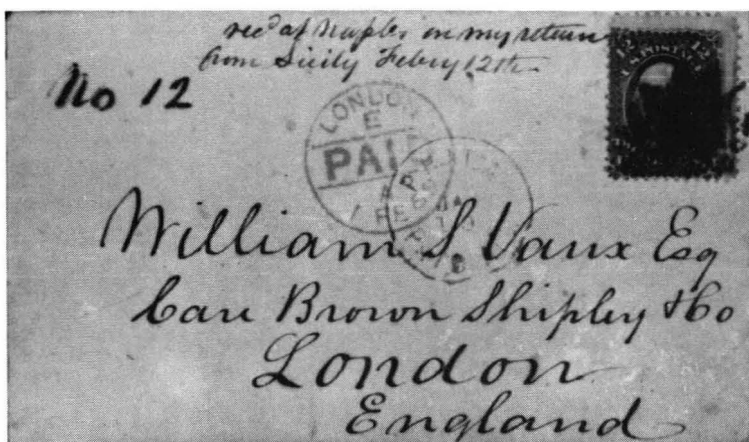 recd at Naples on my return
from Sicily Febry 12th
No 12
12 12
U.S. POSTAGE
LONDON
E
PAI
William S Vaux Esq
Care Brown Shipley & Co
London
England